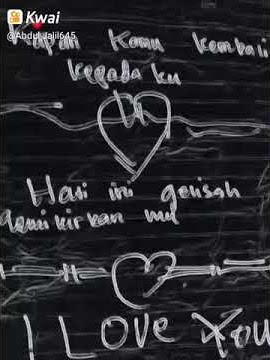 Kwai
@Abdul Jalil645
Kapan Kamu kembali
kepada ku
Hari ini gelisah
memikirkan mu
I LOVE You